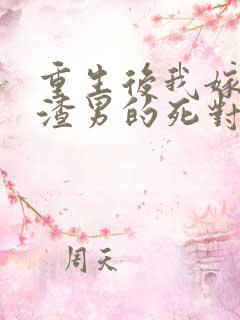 重生後我嫁
渣男的死對
周天